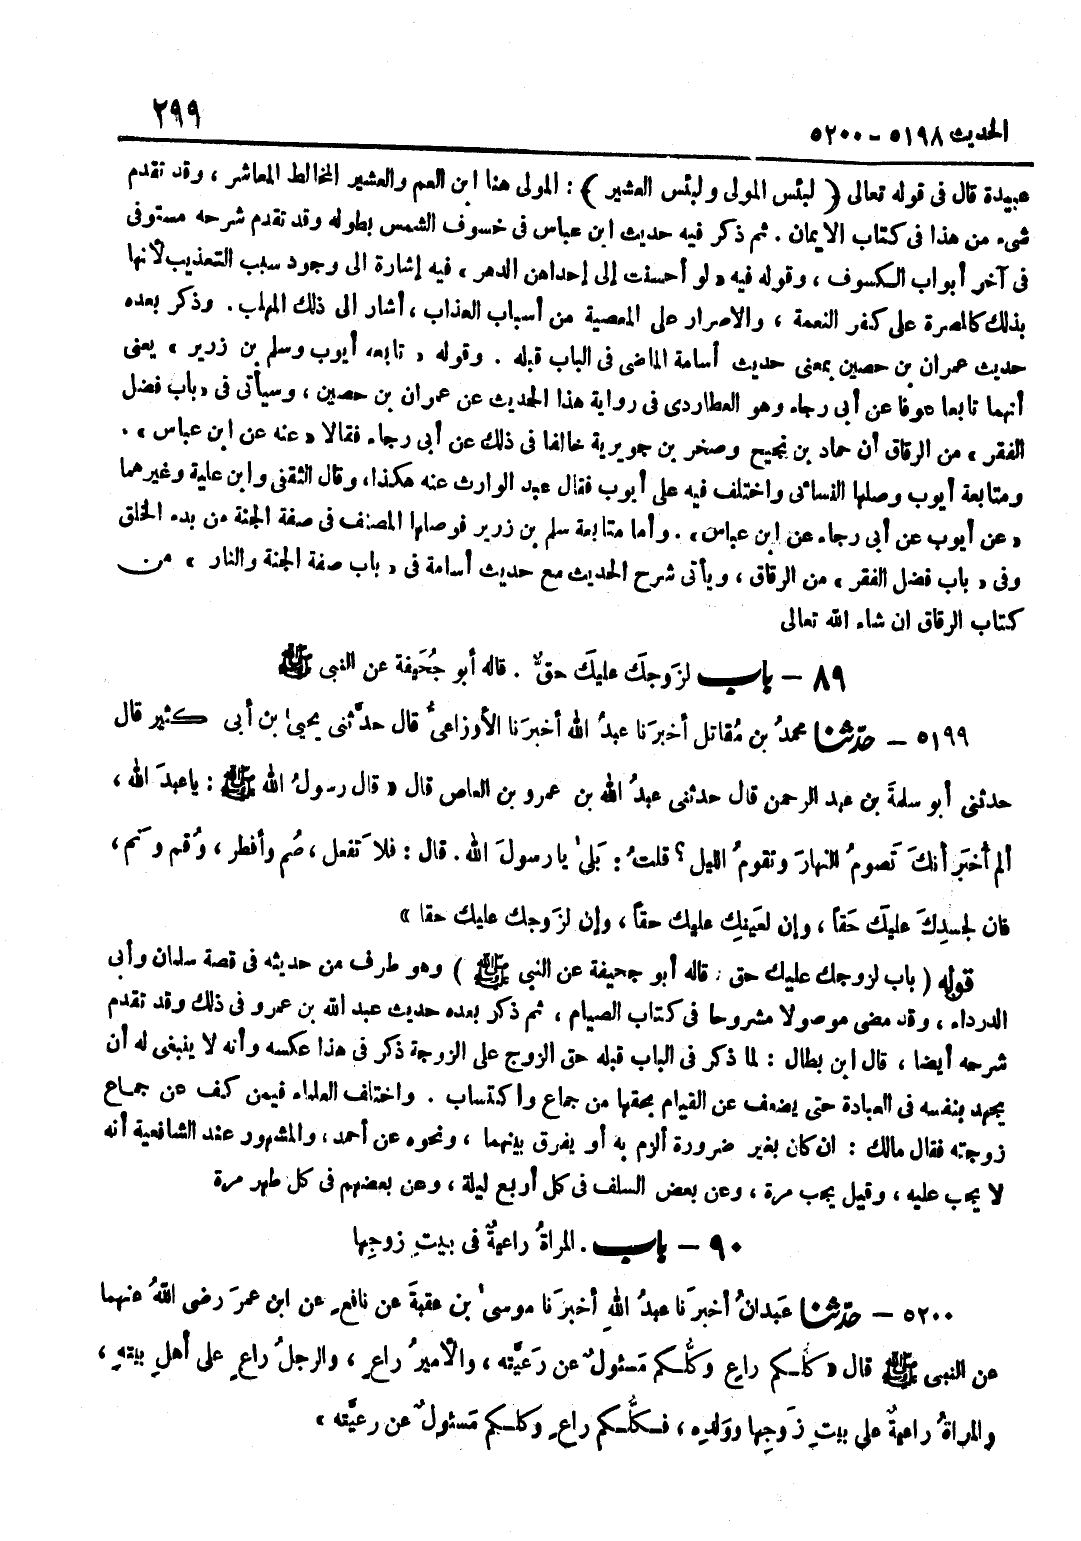 الحديث ٥١٩٨ - ٥٢٠٠
٢٩٩
عبيدة قال فى قوله تعالى ( لبئس المولى ولبئس العشير ) : المولى هنا ابن العم والعشير المخالط المعاشر ، وقد تقدم
شىء من هذا فى كتاب الايمان . ثم ذكر فيه حديث ابن عباس فى خسوف الشمس بطوله وقد تقدم شرحه مستوفى
فى آخر أبواب الكسوف ، وقوله فيه « لو أحسنت إلى إحداهن الدهر » فيه إشارة الى وجود سبب التعذيب لأنها
بذلك كالمصرة على كفر النعمة ، والاصرار على المعصية من أسباب العذاب ، أشار الى ذلك المهلب . وذكر بعده
حديث عمران بن حصين بمعنى حديث أسامة الماضى فى الباب قبله . وقوله « تابعه أيوب وسلم بن زرير » يعنى
أنهما تابعا عوفا عن أبى رجاء وهو العطاردى فى رواية هذا الحديث عن عمران بن حصين ، وسيأتى فى « باب فضل
الفقر » من الرقاق أن حماد بن نجيح وصخر بن جويرية خالفا فى ذلك عن أبى رجاء فقالا « عنه عن ابن عباس » .
ومتابعة أيوب وصلها النسائى واختلف فيه على أيوب فقال عبد الوارث عنه هكذا ، وقال الثقفى وابن علية وغيرهما
« عن أيوب عن أبى رجاء عن ابن عباس » . وأما متابعة سلم بن زرير فوصلها المصنف فى صفة الجنة من بدء الخلق
وفى « باب فضل الفقر » من الرقاق ، ويأتى شرح الحديث مع حديث أسامة فى « باب صفة الجنة والنار » من
كتاب الرقاق ان شاء الله تعالى
٨٩ - باب لزَوجكَ عليكَ حقٌّ . قاله أبو جُحَيفة عن النبى ﷺ
٥١٩٩ - حدّثنا محمدُ بن مُقاتل أخبرَنا عبدُ الله أخبرَنا الأوزاعىُّ قال حدَّثنى يحيىٰ بن أبى كثير قال
حدثنى أبو سلمةَ بن عبد الرحمن قال حدثنى عبدُ الله بن عمرو بن العاص قال « قال رسولُ الله ﷺ : ياعبدَ الله ،
ألم أُخبَر أنكَ تَصومُ النهارَ وتقومُ الليل ؟ قلتُ : بَلىٰ يا رسولَ الله . قال : فلا تَفعل ، صُم وأفطر ، وقُم ونَم ،
فان لجسدِكَ عليكَ حَقاً ، وإن لعَينِك عليك حقاً ، وإن لزَوجك عليك حقا »
قوله ( باب لزوجك عليك حق ، قاله أبو جحيفة عن النبى ﷺ ) وهو طرف من حديثه فى قصة سلمان وأبى
الدرداء ، وقد مضى موصولا مشروحا فى كتاب الصيام ، ثم ذكر بعده حديث عبد الله بن عمرو فى ذلك وقد تقدم
شرحه أيضا ، قال ابن بطال : لما ذكر فى الباب قبله حق الزوج على الزوجة ذكر فى هذا عكسه وأنه لا ينبغى له أن
يجهد بنفسه فى العبادة حتى يضعف عن القيام بحقها من جماع واكتساب . واختلف العلماء فيمن كف عن جماع
زوجته فقال مالك : ان كان بغير ضرورة ألزم به أو يفرق بينهما ، ونحوه عن أحمد ، والمشهور عند الشافعية أنه
لا يجب عليه ، وقيل يجب مرة ، وعن بعض السلف فى كل أربع ليلة ، وعن بعضهم فى كل طهر مرة
٩٠ - باب . المرأةُ راعيةٌ فى بيتِ زوجِها
٥٢٠٠ - حدّثنا عَبدانُ أخبرَنا عبدُ اللهِ أخبرَنا موسىٰ بن عقبةَ عن نافعٍ عن ابن عمرَ رضى اللهُ عنهما
عن النبى ﷺ قال « كلُّكم راعٍ وكلُّكم مَسئولٌ عن رَعيَّته ، والأميرُ راعٍ ، والرجلُ راعٍ على أهلِ بيتهِ ،
والمرأةُ راعيةٌ على بيتِ زَوجِها ووَلدِه ، فكلُّكم راعٍ وكلكم مَسئولٌ عن رعيَّته »